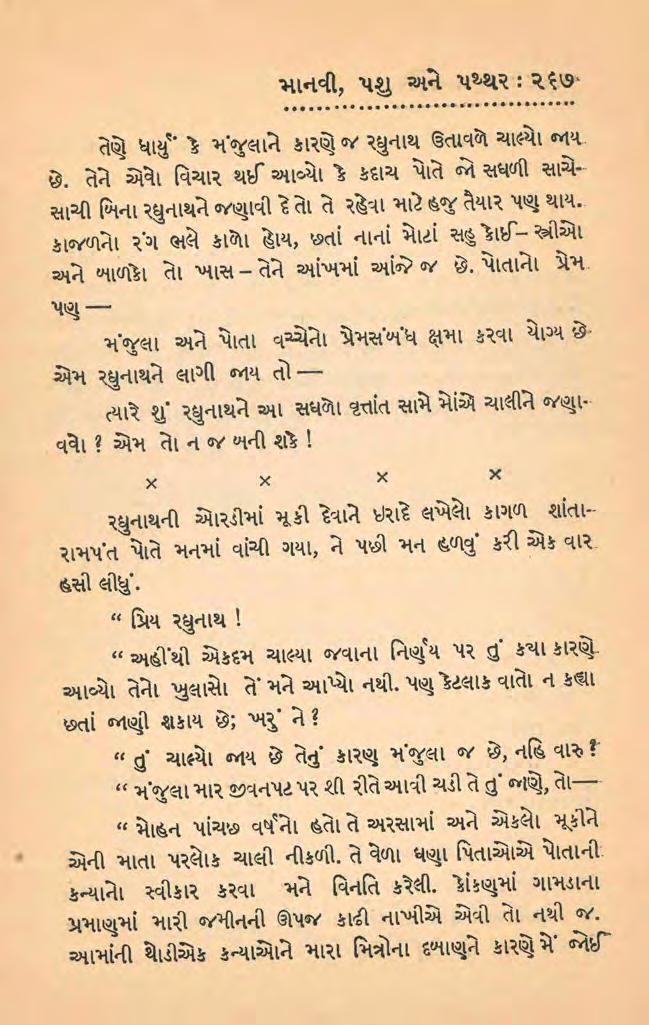 માનવી, પશુ અને પથ્થર : ૨૬૭
તેણે ધાર્યું કે મંજુલાને કારણે જ રઘુનાથ ઉતાવળે ચાલ્યો જાય
છે. તેને એવો વિચાર થઈ આવ્યો કે કદાચ પોતે જો સઘળી સાચે-
સાચી બિના રઘુનાથને જણાવી દે તો તે રહેવા માટે હજુ તૈયાર પણ થાય.
કાજળનો રંગ ભલે કાળો હોય, છતાં નાનાં મોટાં સહુ કોઈ – સ્ત્રીઓ
અને બાળકો તો ખાસ – તેને આંખમાં આંજે જ છે. પોતાનો પ્રેમ
પણ —
મંજુલા અને પોતા વચ્ચેનો પ્રેમસંબંધ ક્ષમા કરવા યોગ્ય છે
એમ રઘુનાથને લાગી જાય તો —
ત્યારે શું રઘુનાથને આ સઘળો વૃત્તાંત સામે મોંએ ચાલીને જણા-
વવો ? એમ તો ન જ બની શકે !
× × × ×
રઘુનાથની ઓરડીમાં મૂકી દેવાને ઇરાદે લખેલો કાગળ શાંતા-
રામપંત પોતે મનમાં વાંચી ગયા, ને પછી મન હળવું કરી એક વાર
હસી લીધું.
“ પ્રિય રઘુનાથ !
“ અહીંથી એકદમ ચાલ્યા જવાના નિર્ણય પર તું કયા કારણે
આવ્યો તેનો ખુલાસો તેં મને આપ્યો નથી. પણ કેટલાક વાતો ન કહ્યા
છતાં જાણી શકાય છે; ખરું ને ?
“ તું ચાલ્યો જાય છે તેનું કારણ મંજુલા જ છે, નહિ વારુ ?
“ મંજુલા માર જીવનપટ પર શી રીતે આવી ચડી તે તું જાણે, તો—
“ મોહન પાંચછ વર્ષનો હતો તે અરસામાં અને એકલો મૂકીને
એની માતા પરલોક ચાલી નીકળી. તે વેળા ઘણા પિતાઓએ પોતાની
કન્યાનો સ્વીકાર કરવા મને વિનતિ કરેલી. કોંકણમાં ગામડાના
પ્રમાણમાં મારી જમીનની ઊપજ કાઢી નાખીએ એવી તો નથી જ.
આમાંની થોડીએક કન્યાઓને મારા મિત્રોના દબાણને કારણે મેં જોઈ